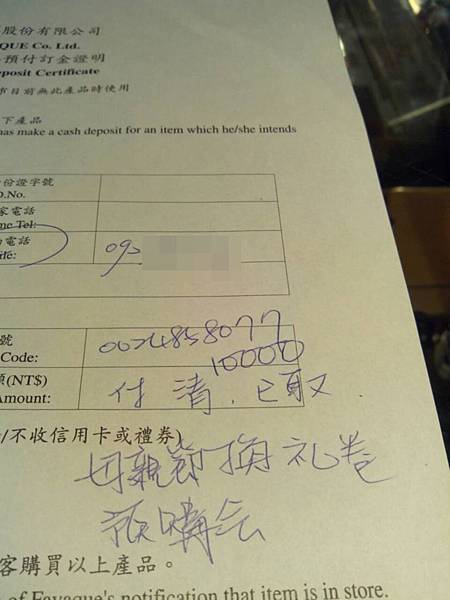 股份有限公司
QUE Co. Ltd.
預付訂金證明
posit Certificate
市目前無此產品時使用
下產品
has make a cash deposit for an item which he/she intends
份證字號
D.No.
家電話
me Tel:
電話
ile:
09
號
Code:
0024858077
10000
額(NT$)
Amount:
付清.已取.
/不收信用卡或禮券)
母親節換礼卷
預購会
客購買以上產品。
of Fayaque's notification that item is in store.